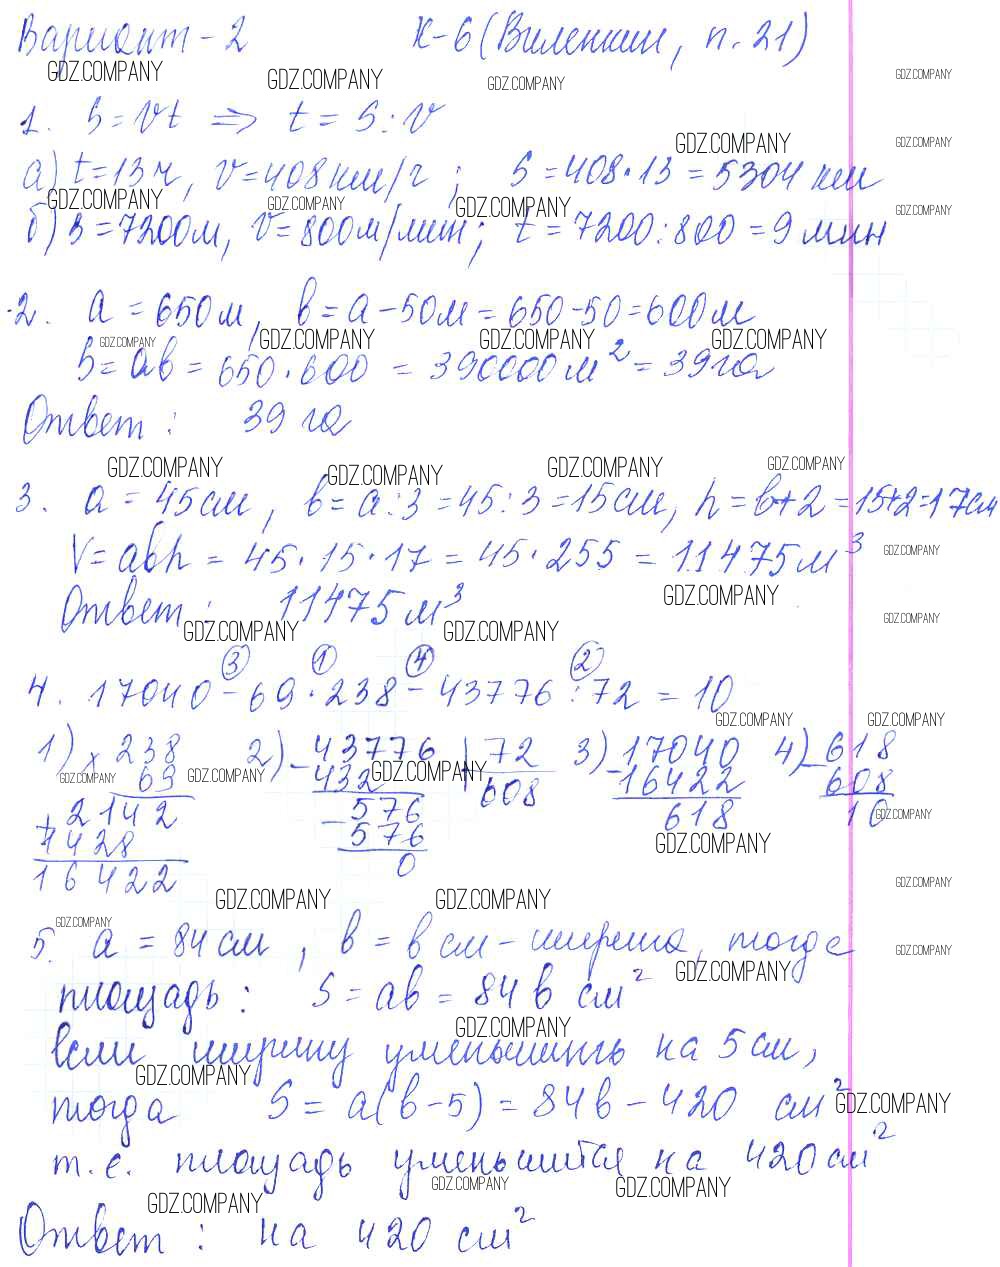 Вариант - 2 К-6 (Виленкин, п. 21)
GDZ.COMPANY GDZ.COMPANY GDZ.COMPANY GDZ.COMPANY
1. S = Vt ⇒ t = S : V
GDZ.COMPANY GDZ.COMPANY
а) t = 13 ч, V = 408 км/ч ; S = 408 · 13 = 5304 км
GDZ.COMPANY GDZ.COMPANY GDZ.COMPANY GDZ.COMPANY
б) S = 7200 м, V = 800 м/мин; t = 7200 : 800 = 9 мин
2. a = 650 м, в = a - 50 м = 650 - 50 = 600 м
GDZ.COMPANY GDZ.COMPANY GDZ.COMPANY GDZ.COMPANY
S = aв = 650 · 600 = 390000 м² = 39 га
Ответ : 39 га
GDZ.COMPANY GDZ.COMPANY GDZ.COMPANY GDZ.COMPANY
3. a = 45 см , в = a : 3 = 45 : 3 = 15 см, h = в + 2 = 15 + 2 = 17 см
V = aвh = 45 · 15 · 17 = 45 · 255 = 11475 м³
GDZ.COMPANY
GDZ.COMPANY
Ответ : 11475 м³
GDZ.COMPANY
GDZ.COMPANY GDZ.COMPANY
③ ① ④ ②
4. 17040 - 69 · 238 - 43776 : 72 = 10
GDZ.COMPANY GDZ.COMPANY
1) × 238 2) - 43776 72 3) - 17040 4) - 618
69 432 608 16422 608
GDZ.COMPANY GDZ.COMPANY GDZ.COMPANY
+ 2142 - 576 618 10
GDZ.COMPANY
1428 576
GDZ.COMPANY
16422 0
GDZ.COMPANY GDZ.COMPANY GDZ.COMPANY
GDZ.COMPANY
5. a = 84 см , в = в см - ширина, тогда
GDZ.COMPANY
GDZ.COMPANY
площадь : S = aв = 84 в см²
GDZ.COMPANY
если ширину уменьшить на 5 см,
GDZ.COMPANY
тогда S = a(в - 5) = 84в - 420 см²
GDZ.COMPANY
т. е. площадь уменьшится на 420 см²
GDZ.COMPANY GDZ.COMPANY
GDZ.COMPANY
Ответ : на 420 см²